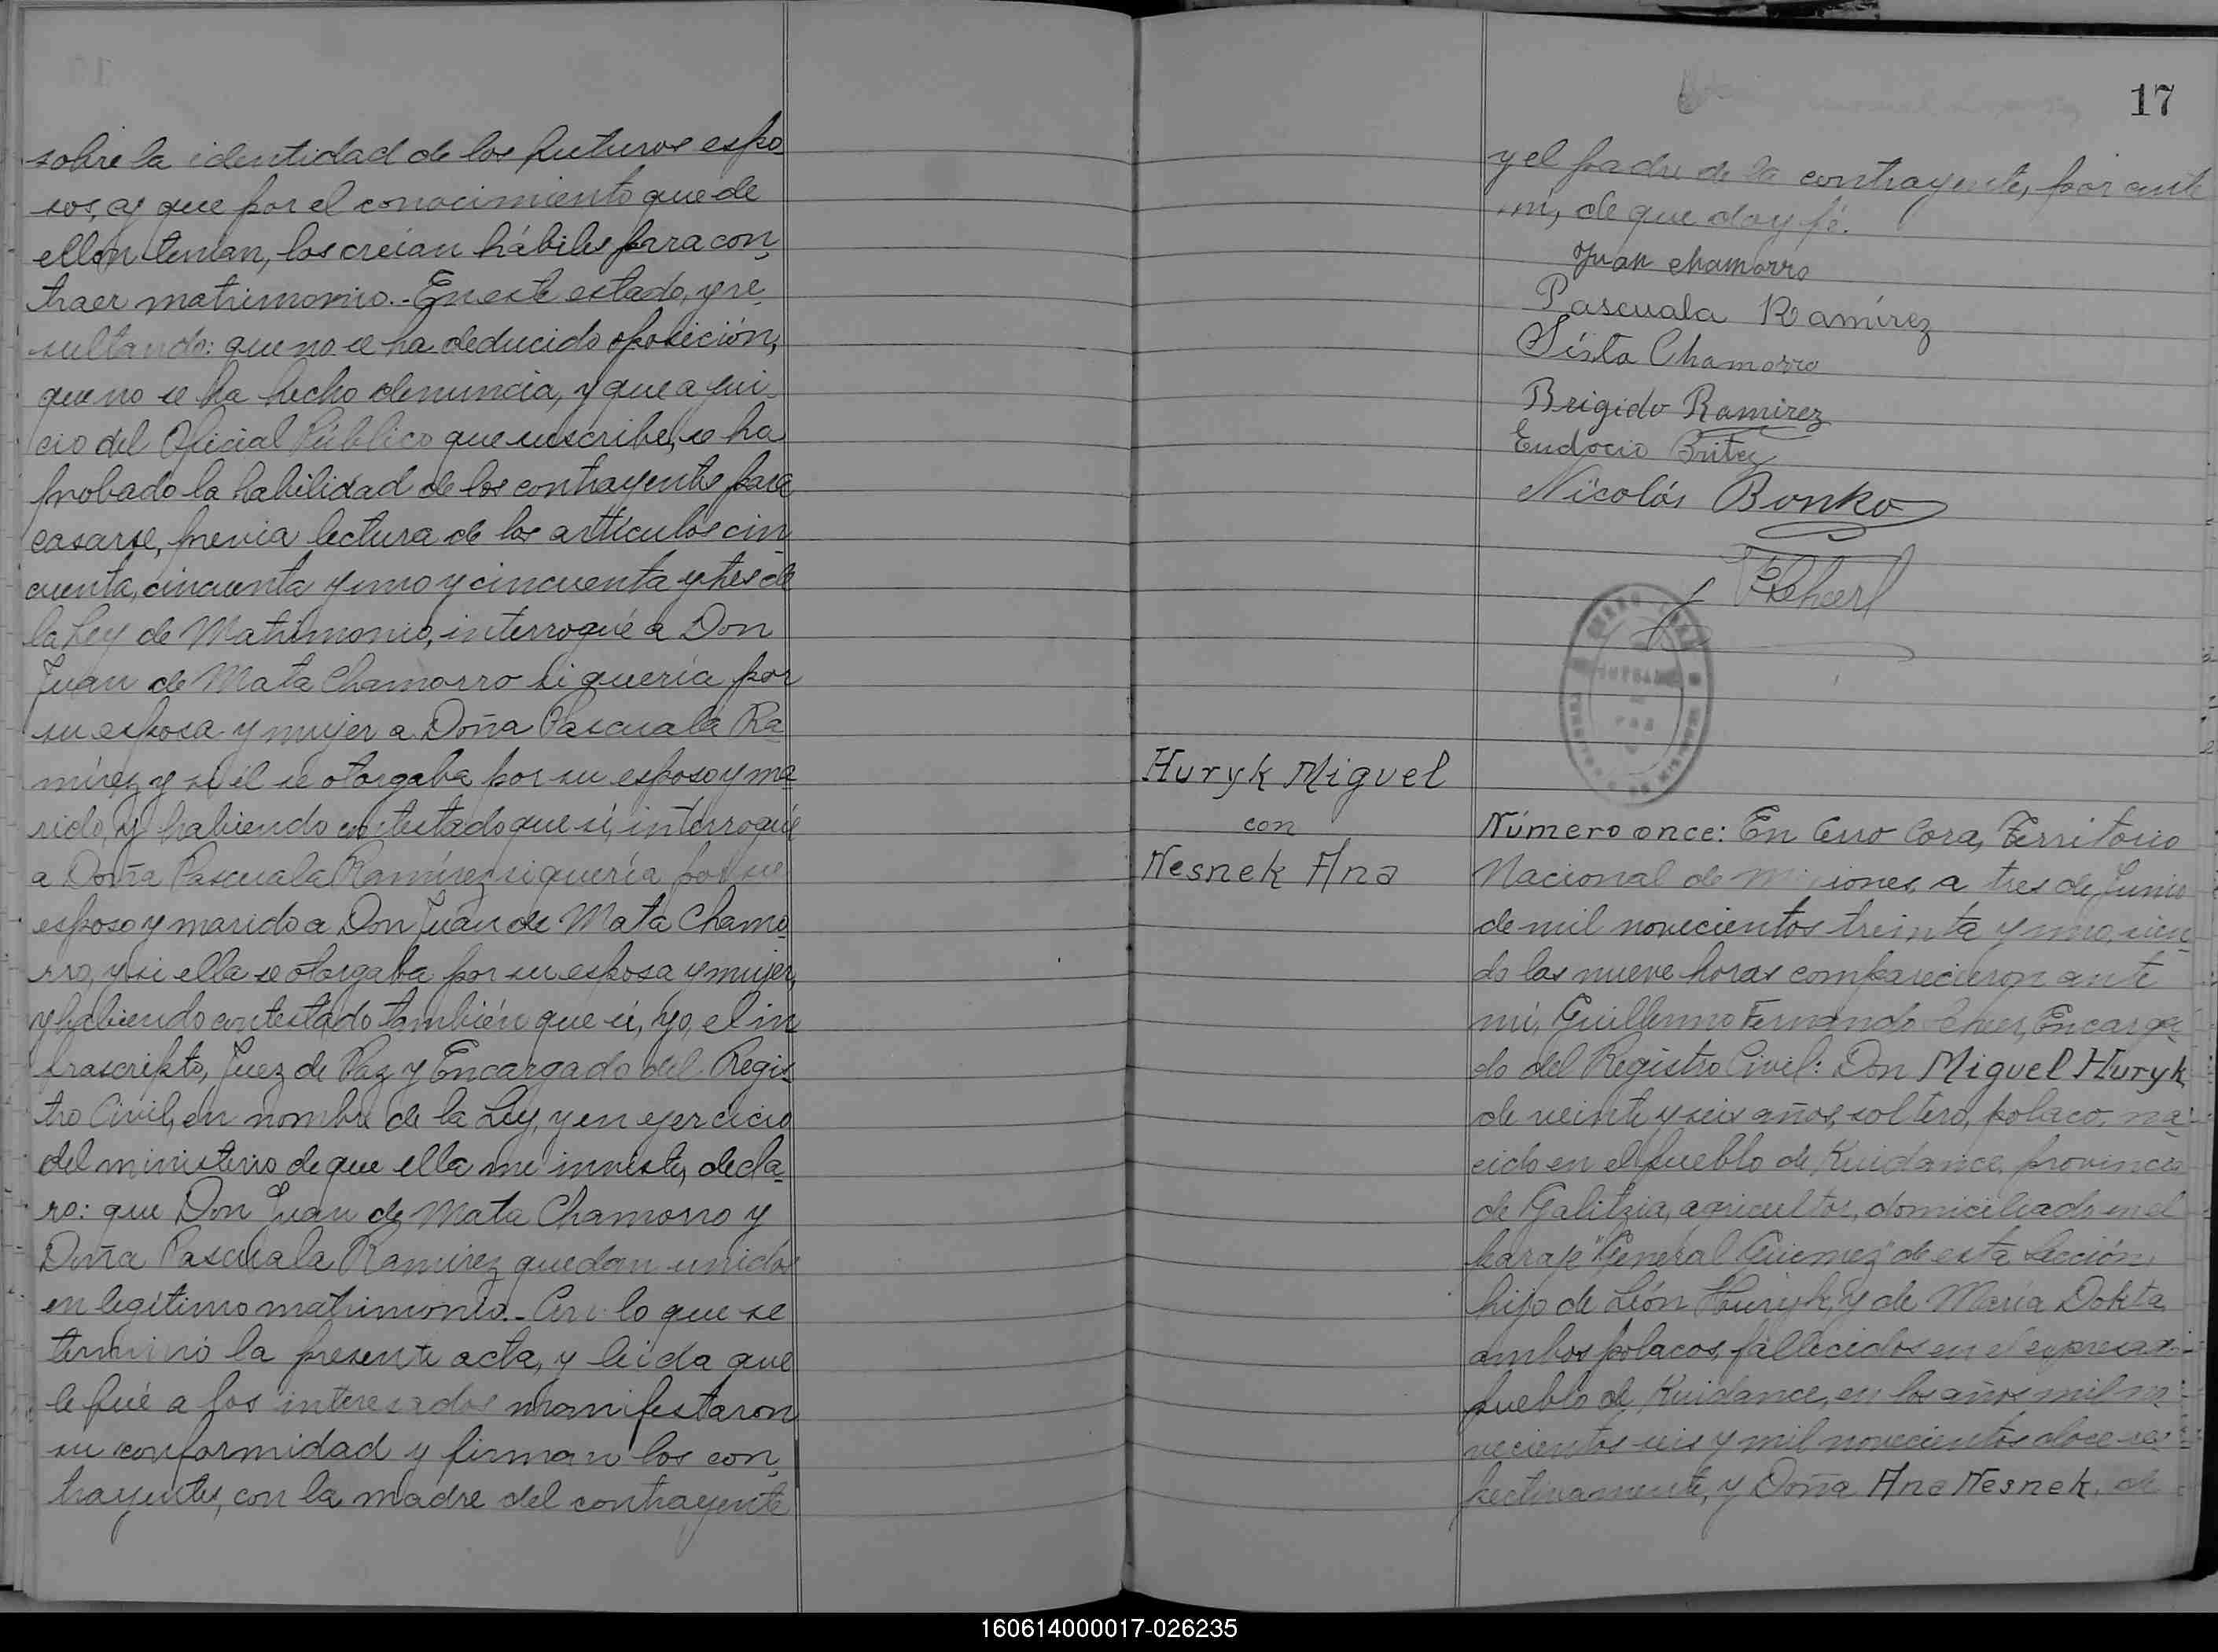 sobre la identidad de los futuros espo
sos, y que por el conocimiento que de
ellos tenían, los creían hábiles para con
traer matrimonio.- En este estado, y re
sultando: que no se ha deducido oposición,
que no se ha hecho denuncia, y que a jui
cio del Oficial Público que suscribe, se ha
probado la habilidad de los contrayentes para
casarse, previa lectura de los artículos cin
cuenta, cincuenta y uno y cincuenta y tres de
la Ley de Matrimonio, interrogué a Don
Juan de Mata Chamorro si quería por
su esposa y mujer a Doña Pascuala Ra
mírez y si él se otorgaba por su esposo y ma
rido, y habiendo contestado que sí, interrogué
a Doña Pascuala Ramírez si quería por su
esposo y marido a Don Juan de Mata Chamo
rro, y si ella se otorgaba por su esposa y mujer,
y habiendo contestado también que sí, yo, el in
frascripto, Juez de Paz y Encargado del Regis
tro Civil, en nombre de la Ley, y en ejercicio
del ministerio de que ella me inviste, decla
ro: que Don Juan de Mata Chamorro y
Doña Pascuala Ramírez quedan unidos
en legítimo matrimonio.- Con lo que se
terminó la presente acta, y leida que
le fué a los interesados manifestaron
su conformidad y firman los con
trayentes, con la madre del contrayente
17
y el padre de la contrayente, por ante
mí, de que doy fé.
Juan chamorro
Pascuala Ramírez
Sista Chamorro
Brigido Ramirez
Eudocio Britez
Nicolás Bonko
Huryk Miguel
con
Nesnek Ana
Número once: En Cerro Cora, Territorio
Nacional de Misiones, a tres de Junio
de mil novecientos treinta y uno, sien
do las nueve horas comparecieron ante
mí, Guillermo Fernando Encarga
do del Registro Civil: Don Miguel Huryk
de veinte y seis años, soltero, polaco, na
cido en el pueblo de Kuidance, provincia
de Galitzia, agricultor, domiciliado en el
paraje "General Güemez" de esta Sección,
hijo de León Huryk, y de María Dokta
ambos polacos, fallecidos en el expresado
pueblo de Kuidance, en los años mil no
vecientos seis y mil novecientos doce res
pectivamente, y Doña Ana Nesnek, de
160614000017-026235